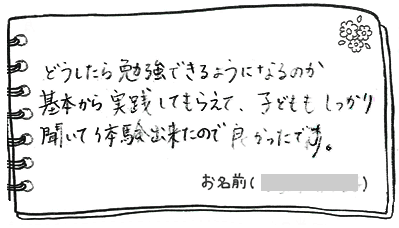 どうしたら勉強できるようになるのか
基本から実践してもらえて、子どももしっかり
聞いて体験出来たので良かったです。
お名前( )